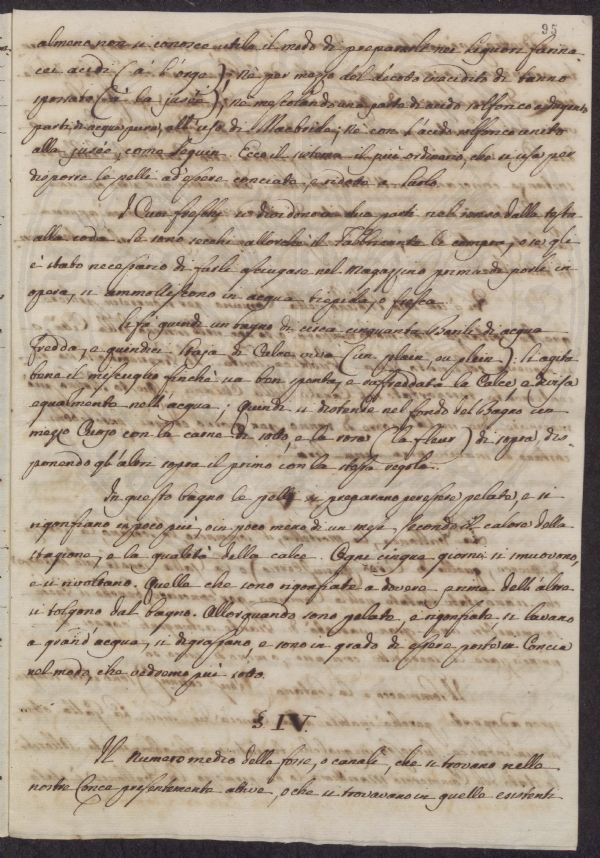 95
almeno non si conosce utile il modo di prepararle nei liquori farina
cei acidi (à l'orge); nè per mezzo del decotto inacidito di tanno
spossato (à la jusée); nè mescolando una parte di acido solforico e
parti di acqua pura, all'uso di Macbride; nè con l'acido solforico unito
alla jusée, come Seguin. Ecco il sistema il più ordinario, che si usa per
disporre le pelli ad essere conciate, e ridotte a
I Cuoi freschi si dividono in due parti nel senso dalla testa
alla coda. Se sono secchi allorchè il Fabbricante le compra, o se gli
è stato necessario di farli asciugare nel Magazzino prima di porle in
opera, si ammolliscono in acqua tiepida, o fresca.
Si fà quindi un bagno di circa cinquanta Barili di acqua
fredda, e quindici Staja di Calce viva (un plein, ou plain). Si agita
bene il miscuglio finchè sia ben spenta, e raffreddata la Calce, e divisa
egualmente nell'acqua; Quindi si distende nel fondo del Bagno un
mezzo Cuojo con la carne di sotto, e la rosa (la fleur) di sopra, dis
ponendo gl'altri sopra il primo con la stessa regola.
In questo bagno le pelli si preparano per esser pelate, e si
rigonfiano in poco più, o in poco meno di un mese, secondo il calore della
stagione, e la qualità della calce. Ogni cinque giorni si muovono,
e si rivoltano. Quelle che sono rigonfiate a dovere prima dell'altre
si tolgono dal bagno. Allorquando sono pelate, e rigonfiate, si lavano
a grand'acqua, si digrassano, e sono in grado di essere poste in Concia
nel modo, che vedremo più sotto.
§ IV.
Il numero medio delle fosse, o canali, che si trovano nelle
nostre Conce presentemente attive, o che si trovavano in quelle esistenti